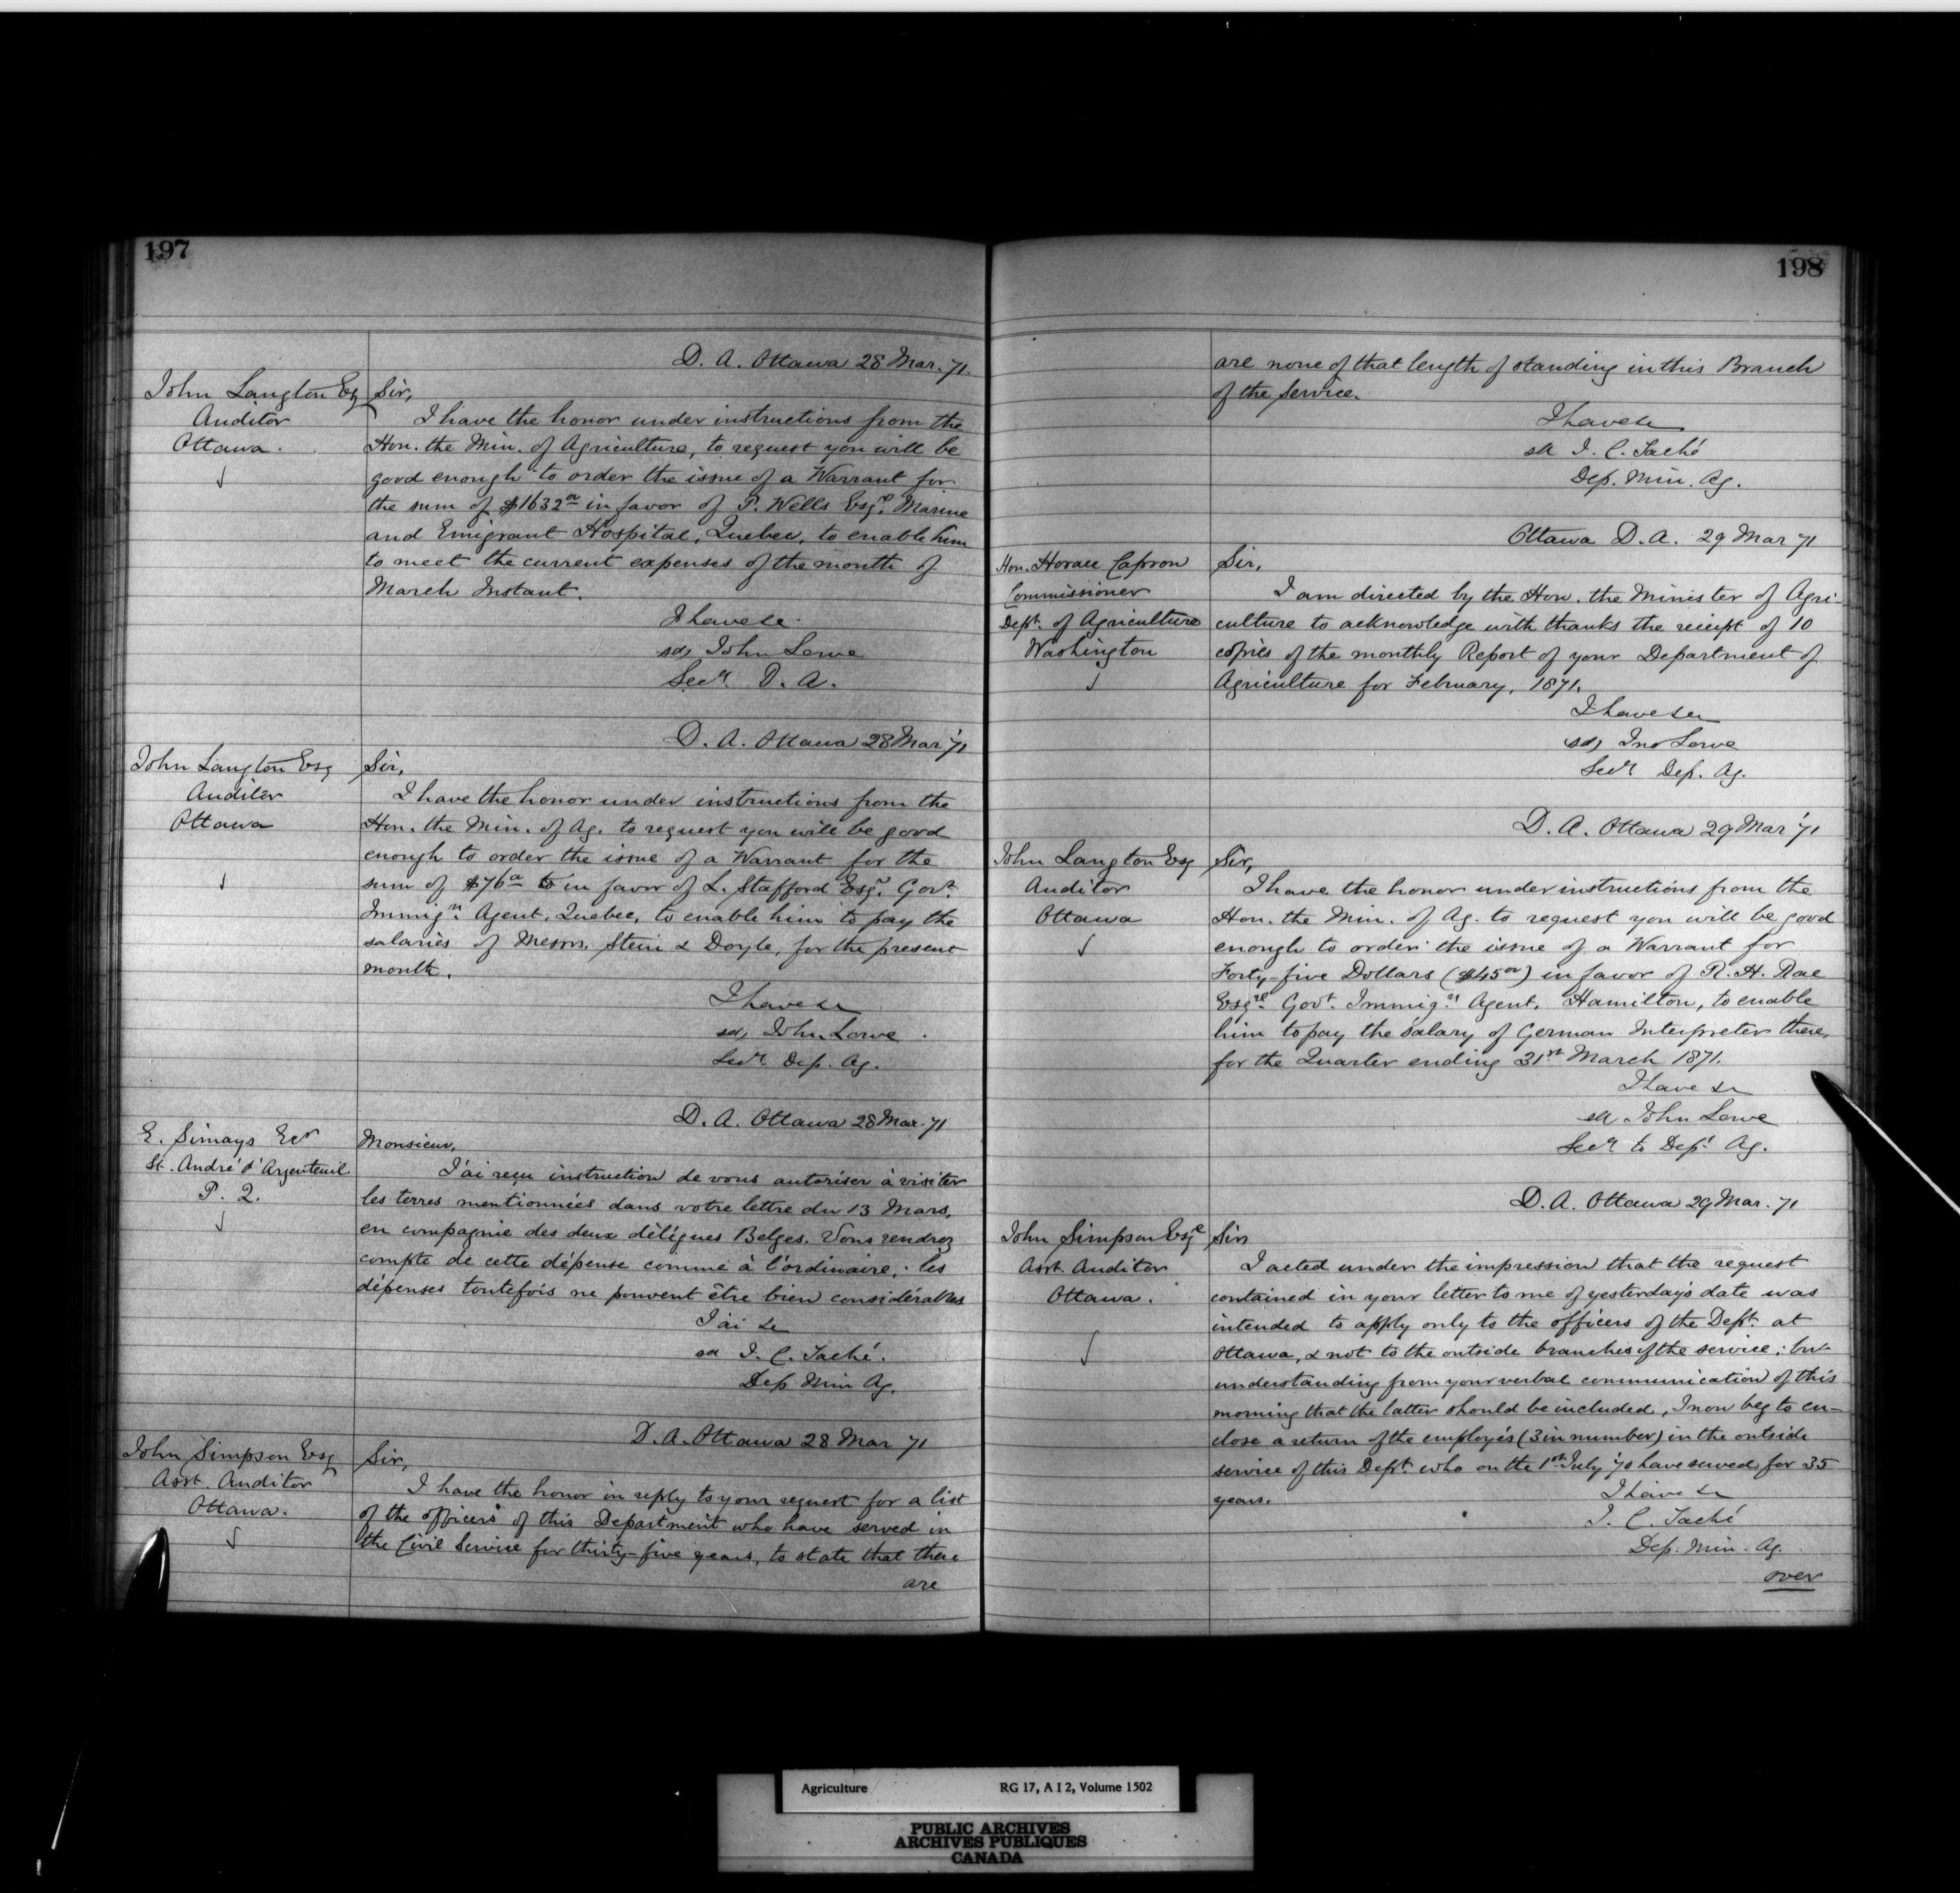 197
D. A. Ottawa 28 Mar. 71.
John Langton Esq
Auditor
Ottawa.
Sir,
I have the honor under instructions from the
Hon. the Min. of Agriculture, to request you will be
good enough to order the issue of a Warrant for
the sum of $1632 in favor of P. Wells Esqre. Marine
and Emigrant Hospital, Quebec, to enable him
to meet the current expenses of the month of
March Instant.
I have &c.
sd, John Lowe
Secy. D. A.
D. A. Ottawa 28 Mar '71
John Langton Esq
Auditor
Ottawa
Sir,
I have the honor under instructions from the
Hon. the Min. of Ag. to request you will be good
enough to order the issue of a Warrant for the
sum of $76 in favor of L. Stafford Esqr. Govt.
Immign. Agent, Quebec, to enable him to pay the
salaries of Messrs. Stein & Doyle, for the present
month.
I have &c
sd, John Lowe.
Secy. Dep. Ag.
D. A. Ottawa 28 Mar. 71
E. Simays Ecr
St. André d'Argenteuil
P. Q.
Monsieur,
J'ai reçu instruction de vous autoriser à visiter
les terres mentionnées dans votre lettre du 13 Mars,
en compagnie des deux délégues Belges. Vous rendrez
compte de cette dépense comme à l'ordinaire; les
dépenses toutefois ne peuvent être bien considérables
J'ai &c
sd J. C. Taché.
Dep Min Ag.
D. A. Ottawa 28 Mar 71
John Simpson Esq
Asst. Auditor
Ottawa.
Sir,
I have the honor in reply to your request for a list
of the officers of this Department who have served in
the Civil Service for thirty-five years, to state that there
are
198
are none of that length of standing in this Branch
of the Service.
I have &c
sd J. C. Taché
Dep. Min. Ag.
Ottawa D. A. 29 Mar 71
Hon. Horace Capron
Commissioner
Dept. of Agriculture
Washington
Sir,
I am directed by the Hon. the Minister of Agri-
culture to acknowledge with thanks the reciept of 10
copies of the monthly Report of your Department of
Agriculture for February, 1871.
I have &c
sd, Jno Lowe
Secy Dep. Ag.
D. A. Ottawa 29 Mar '71
John Langton Esq
Auditor
Ottawa
Sir,
I have the honor under instructions from the
Hon. the Min. of Ag. to request you will be good
enough to order the issue of a Warrant for
Forty-five Dollars ($45oo) in favor of R. H. Rae
Esqre. Govt. Immign. Agent, Hamilton, to enable
him to pay the salary of German Interpreter there,
for the Quarter ending 31st March 1871.
I have &c
sd John Lowe
Secy to Dept. Ag.
D. A. Ottawa 29 Mar. 71
John Simpson Esqe
Asst. Auditor
Ottawa.
Sir
I acted under the impression that the request
contained in your letter to me of yesterday's date was
intended to apply only to the officers of the Dept. at
Ottawa, & not to the outside branches of the service; but
understanding from your verbal communication of this
morning that the latter should be included, I now beg to en-
close a return of the employés (3 in number) in the outside
service of this Dept. who on the 1st July '70 have served for 35
years.
I have &c
J. C. Taché
Dep. Min. Ag.
over
Agriculture RG 17, A I 2, Volume 1502
PUBLIC ARCHIVES
ARCHIVES PUBLIQUES
CANADA